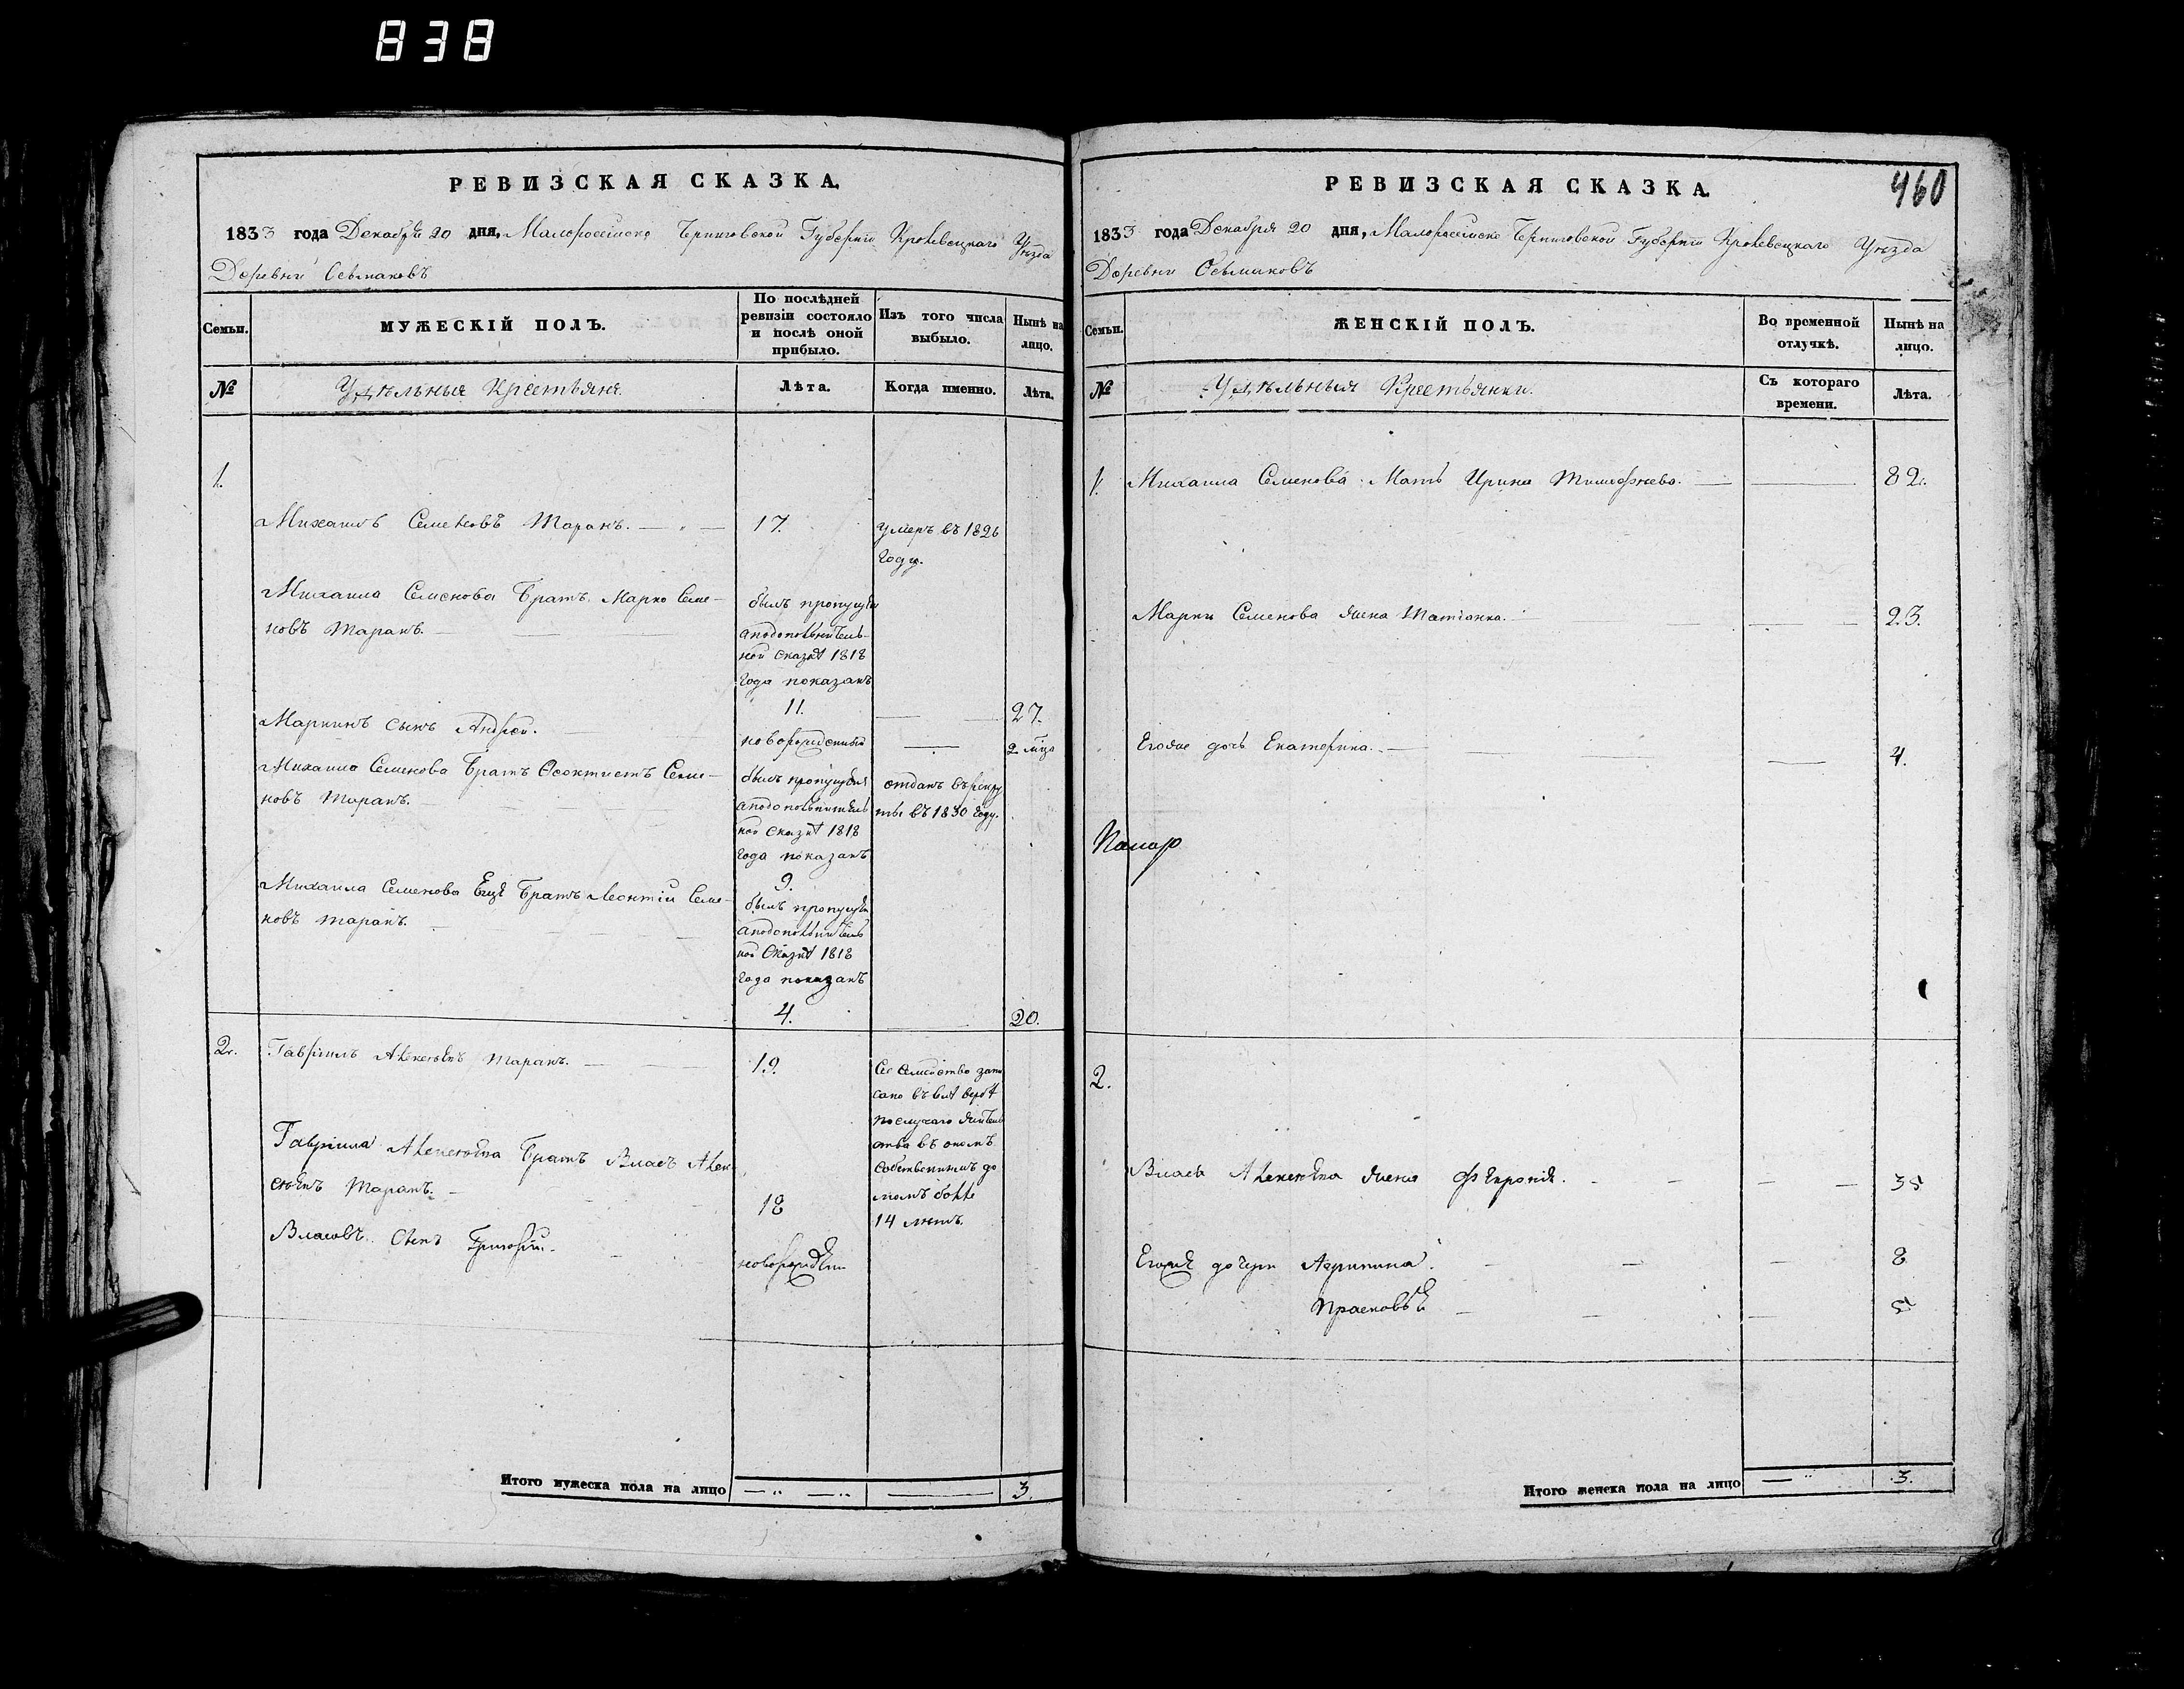 838
РЕВИЗСКАЯ СКАЗКА.
1833 года Декабря 20 дня, Малороссийско Черниговской Губернiи Кролевецкаго Уѣзда
Деревни
Семьи.
МУЖЕСКIЙ ПОЛЪ.
По послѣдней
ревизiи состояло
и послѣ оной
прибыло.
Изъ того числа
выбыло.
Нынѣ на
лицо.
№
Удѣльныя Крестьяне
Лѣта.
Когда именно.
Лѣта.
1.
Михаилъ Семеновъ Таранъ. 17. умеръ въ 1826
году.
Михаила Семенова Братъ Марко Семе-
новъ Таранъ.
былъ пропущен
а по дополнитель-
ной сказкѣ 1818
года показанъ
11. 27.
Маркинъ сынъ Андрей. новорожденный 2 мѣца
Михаила Семенова Братъ Феоктистъ Семе-
новъ Таранъ.
былъ пропущен
а по дополнитель
ной сказкѣ 1818
года показанъ
9.
отданъ въ рекру
ты въ 1830 году.
Михаила Семенова Еще Братъ Леонтiй Семе-
новъ Таранъ.
былъ пропущен
а по дополнитель
ной сказкѣ 1818
года показанъ
4. 20.
2. Гаврiилъ Алексѣевъ Таранъ. 19.
Гаврiила Алексѣева Братъ Власъ Алек
сѣевъ Таранъ. 18
Власовъ Сынъ Григорiй. новорожден
Сiе Семейство запи
сано въ
по случаю жител
ства въ ономъ
собственнымъ до
момъ болѣе
14 лѣтъ.
Итого мужеска пола на лицо 3.
РЕВИЗСКАЯ СКАЗКА.
460
1833 года Декабря 20 дня, Малороссийско Черниговской Губернiи Кролевецкаго Уѣзда
Деревни
Семьи.
ЖЕНСКIЙ ПОЛЪ.
Во временной
отлучкѣ.
Нынѣ на
лицо.
№
Удѣльныя Крестьянки.
Съ котораго
времени.
Лѣта.
1. Михаила Семенова Мать Ирина Тимофѣева. 82.
Марки Семенова жена Татiанна. 23.
Егоже дочь Екатерина. 4.
2.
Власа Алексѣева жена Февронiя. 35
Егоже дочери Агрипина. 8
Прасковья 5
Итого женска пола на лицо 3.